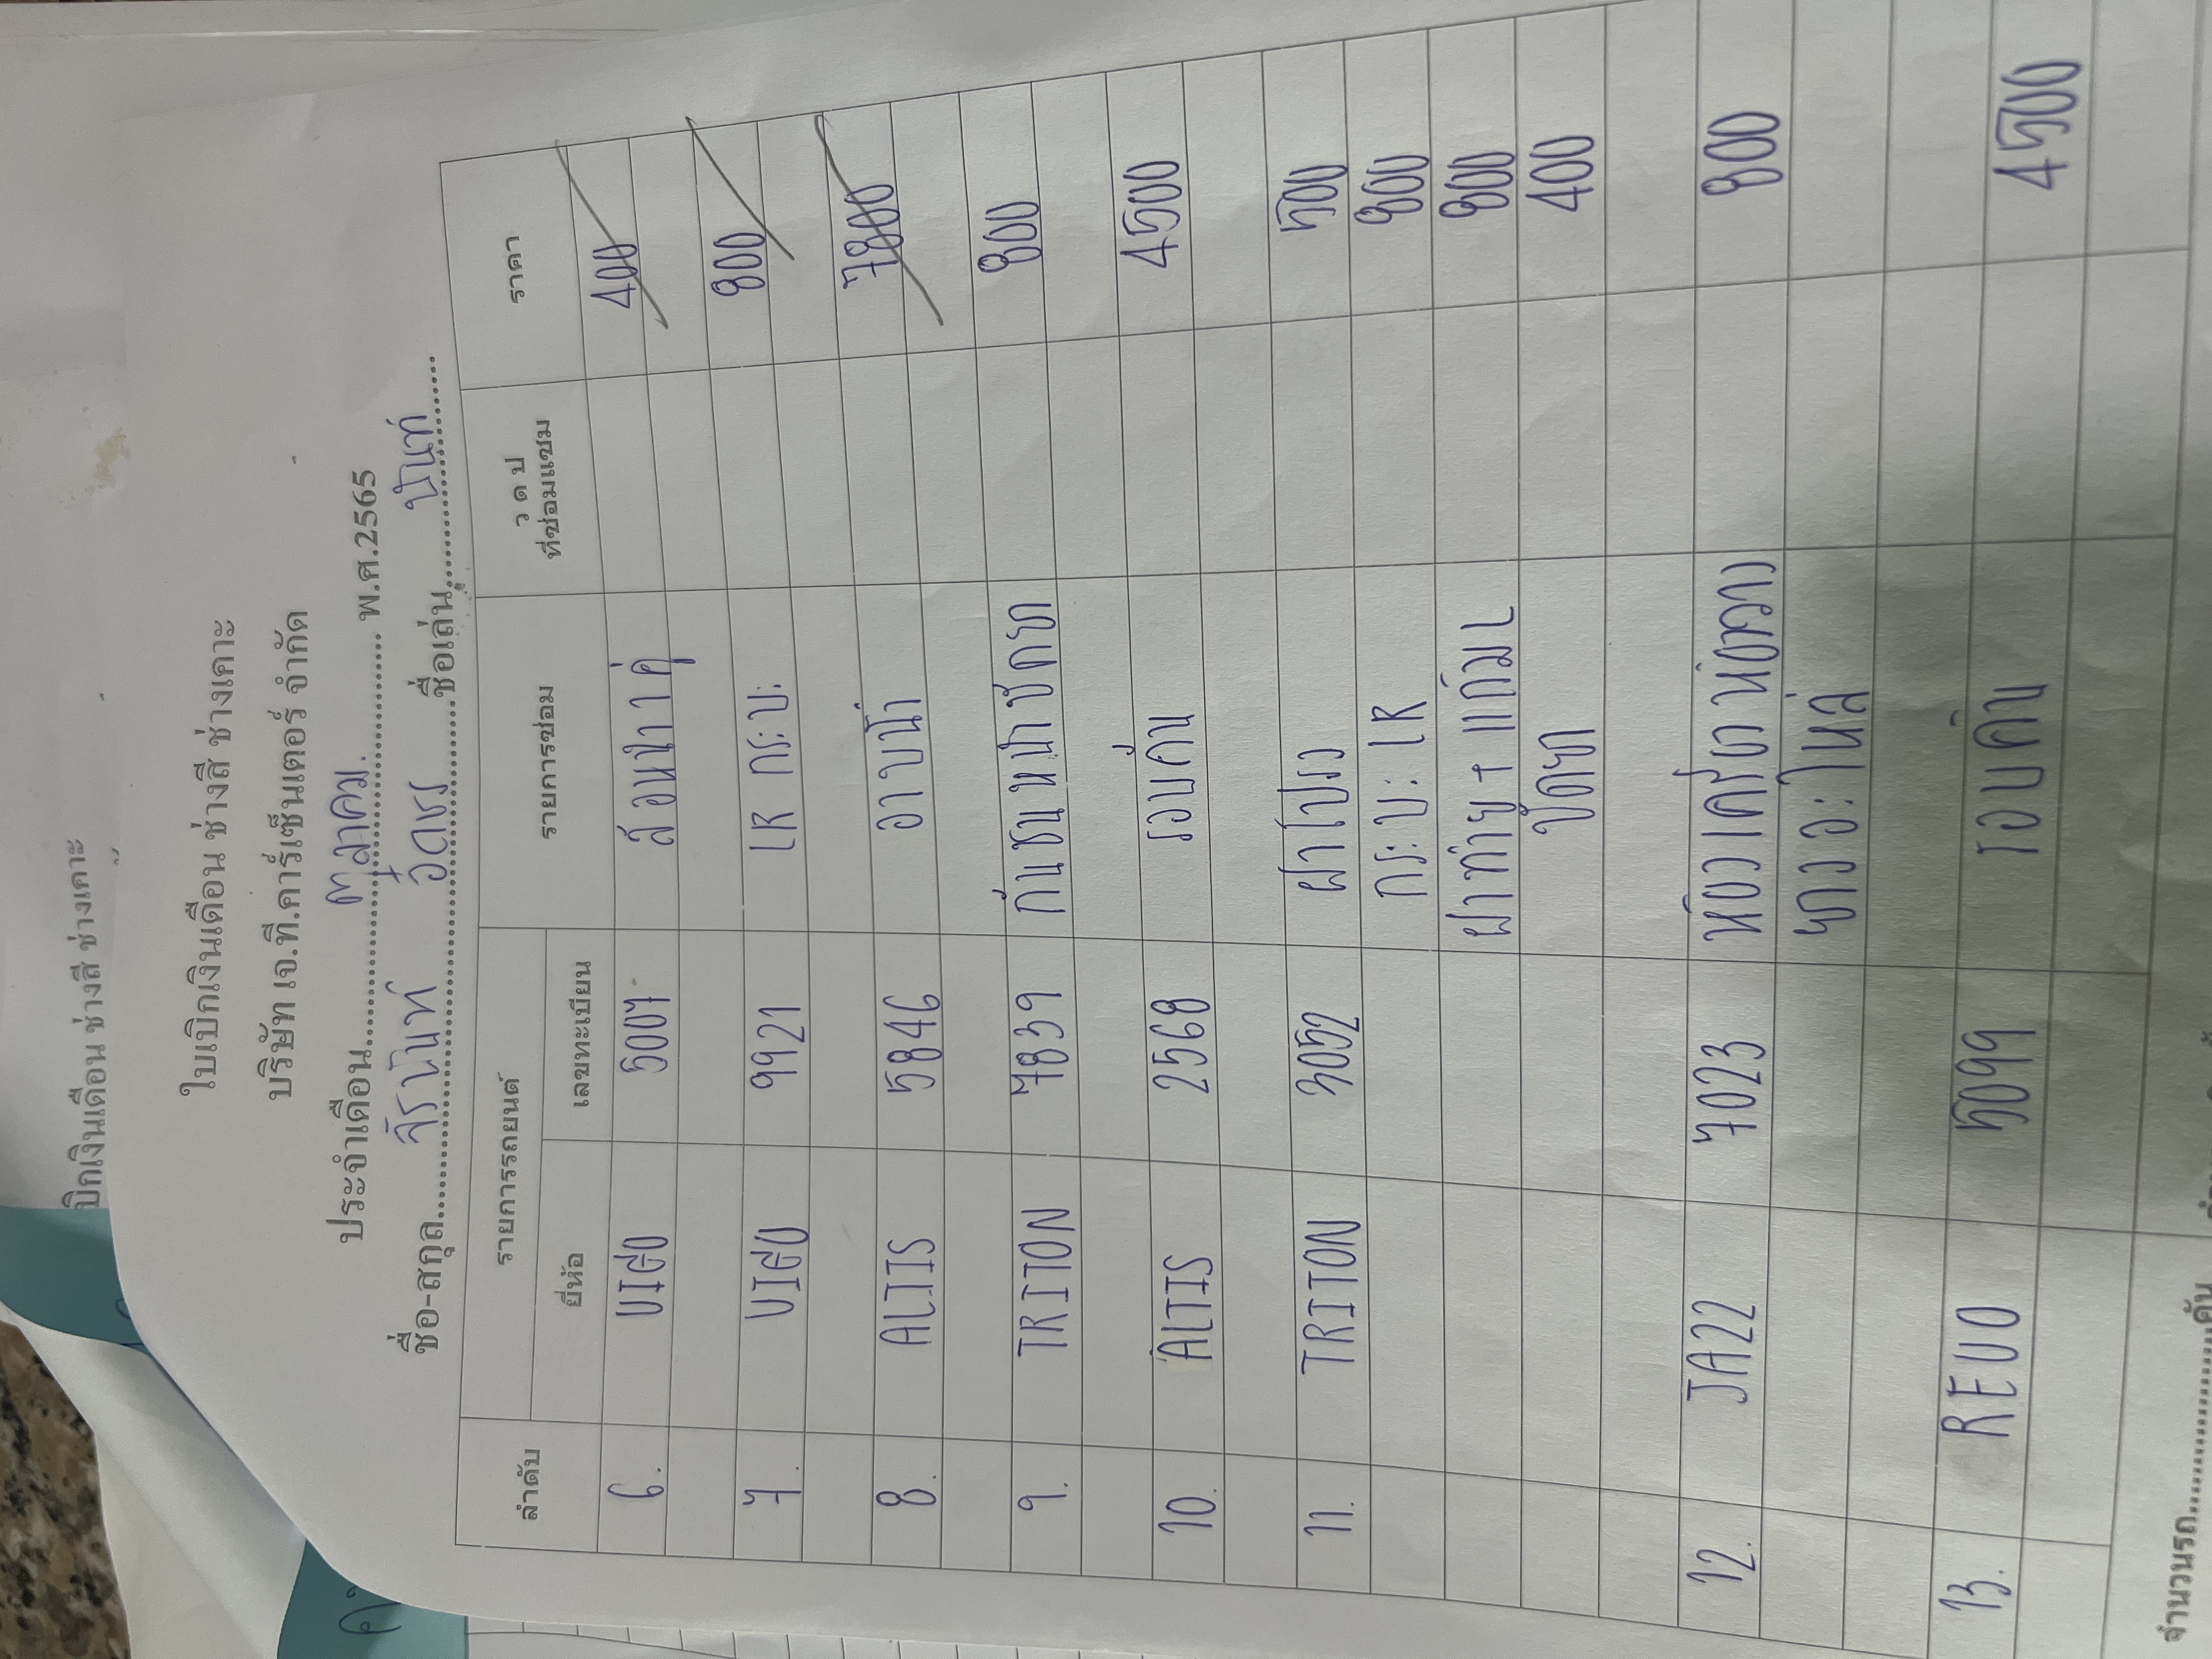 บิกเงินเดือน ช่างสี ช่างเคาะ
ใบเบิกเงินเดือน ช่างสี ช่างเคาะ
บริษัท เจ.ที.คาร์เซ็นเตอร์ จำกัด
ประจำเดือน ตุลาคม. พ.ศ.2565
ชื่อ-สกุล จิรนันท์ ชื่อเล่น นันท์
ลำดับ รายการรถยนต์ รายการซ่อม ว ด ป ที่ซ่อมแซม ราคา
ยี่ห้อ เลขทะเบียน
6. VIGO 5007 ล้อหน้า 1 คู่ 400
7. VIGO 9921 LR กระบะ 800
8. ALTIS 5846 อาบน้ำ 7800
9. TRITON 7839 กันชนหน้า 800
10. ALTIS 2568 รอบคัน 4500
11. TRITON 3052 ฝาโปรง 500
กระบะ LR 800
ฝาท้าย + แก้ม L 800
400
12. JAZZ 7023 800
13. REVO 5099 รอบคัน 4500
จำนวนรถ คัน